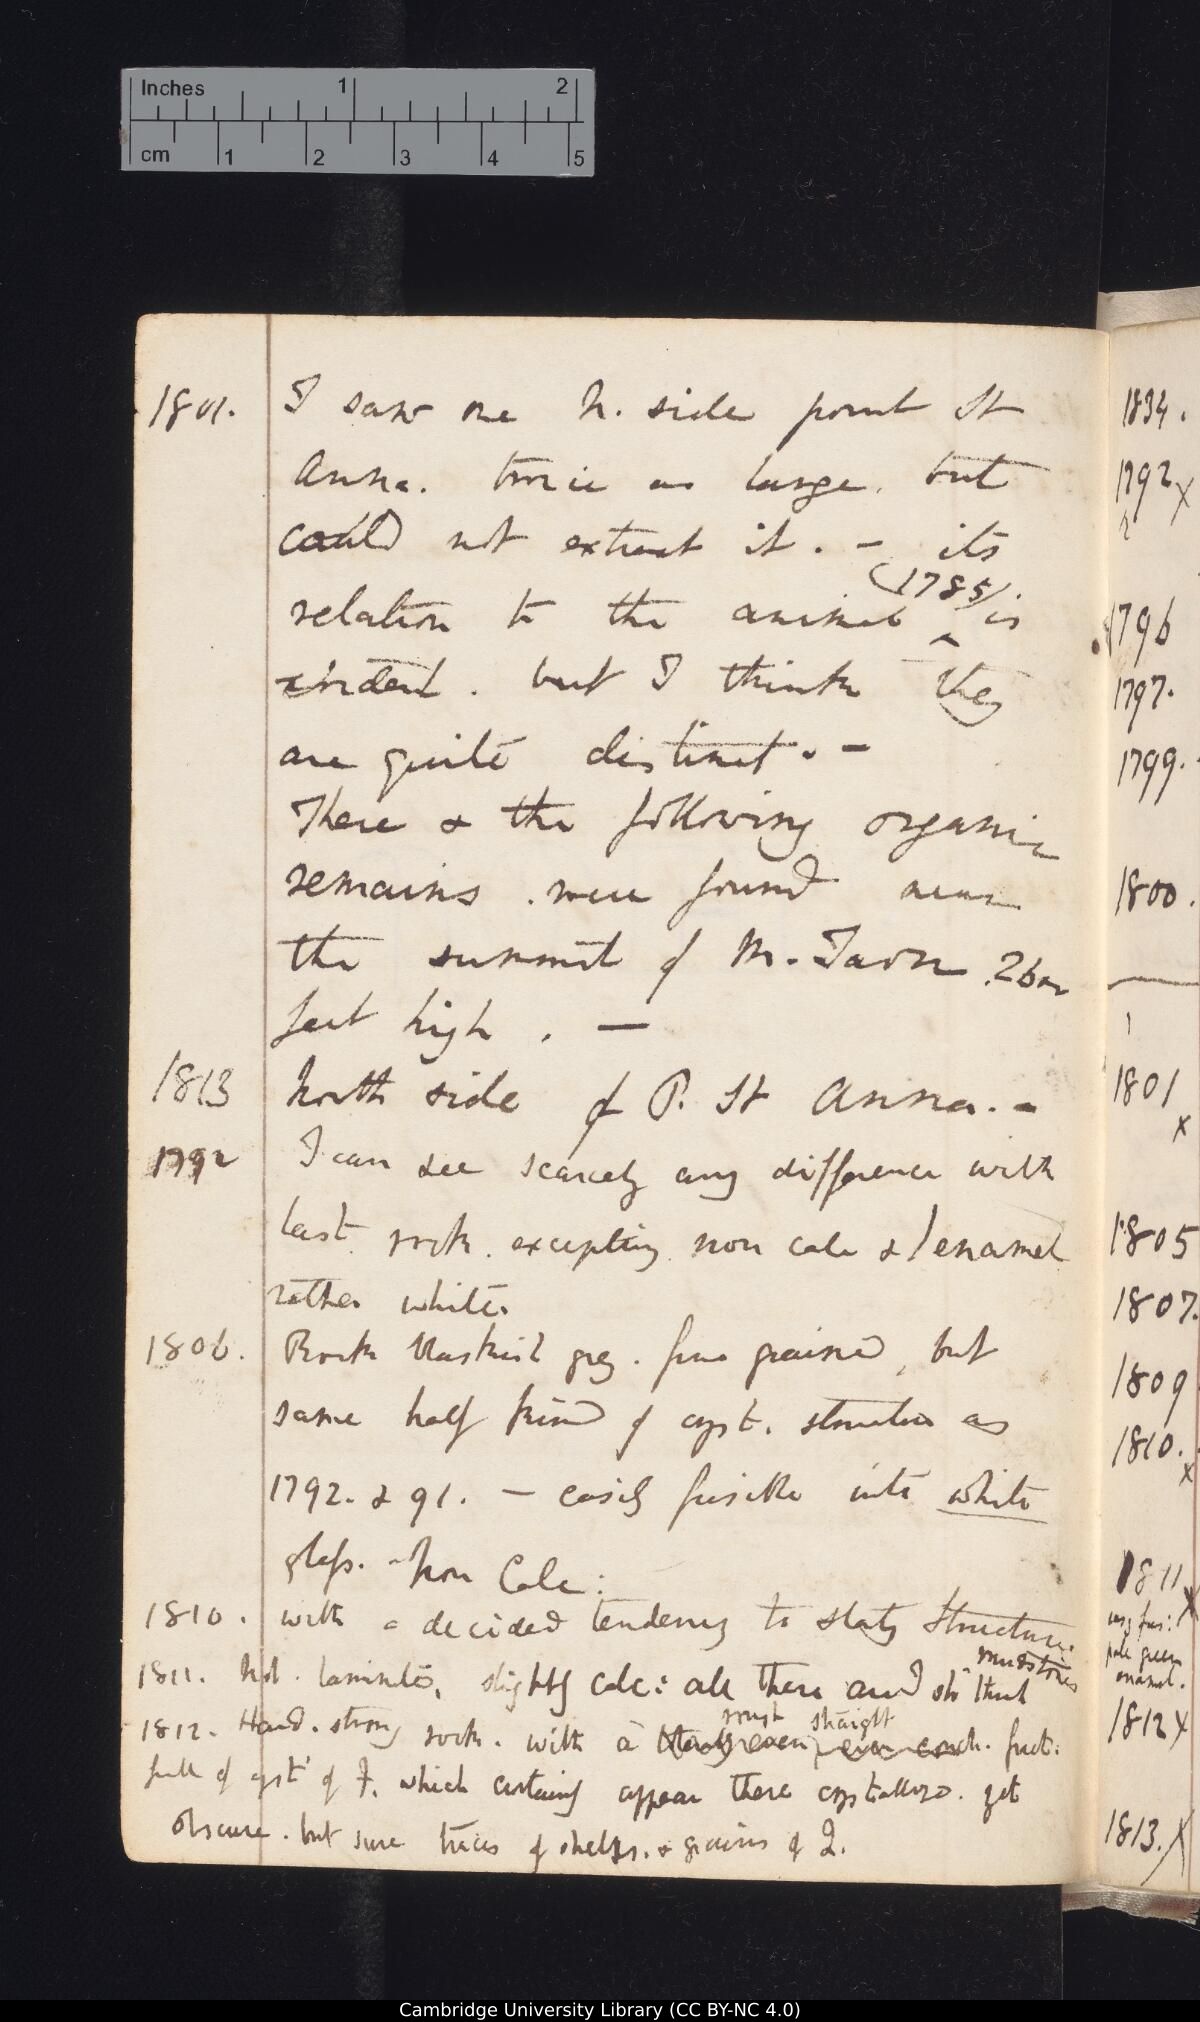 Inches 1 2
cm 1 2 3 4 5
1801. I saw one N. side point St
Anna. twice as large. but
could not extract it. — its
relation to the animal (1785) is
evident. but I think they
are quite distinct. —
These & the following organic
remains. were found near
the summit of M. Tarn 2600
feet high. —
1813 North side of P. St Anna. —
1792 I can see scarcely any difference with
last rock. excepting non calc & enamel
rather white.
1806. Rock blackish grey. fine grained, but
same half kind of cryst. structure as
1792. & 91. — easily fusible into white
glass. — Non Calc:
1810. with a decided tendency to slaty structure.
mudstones
1811. Not. laminated, slightly calc: all these and
rough straight
1812. Hard. strong rock. with a fract:
full of cryst of F. which certainly appear there crystallized. yet
obscure. but sure traces of shells. & grains of Q.
1834.
1792 x
1796
1797.
1799.
1800.
1801
x
1805
1807.
1809
1810.
x
1811
x
pale green
enamel.
1812 x
1813. x
Cambridge University Library (CC BY-NC 4.0)